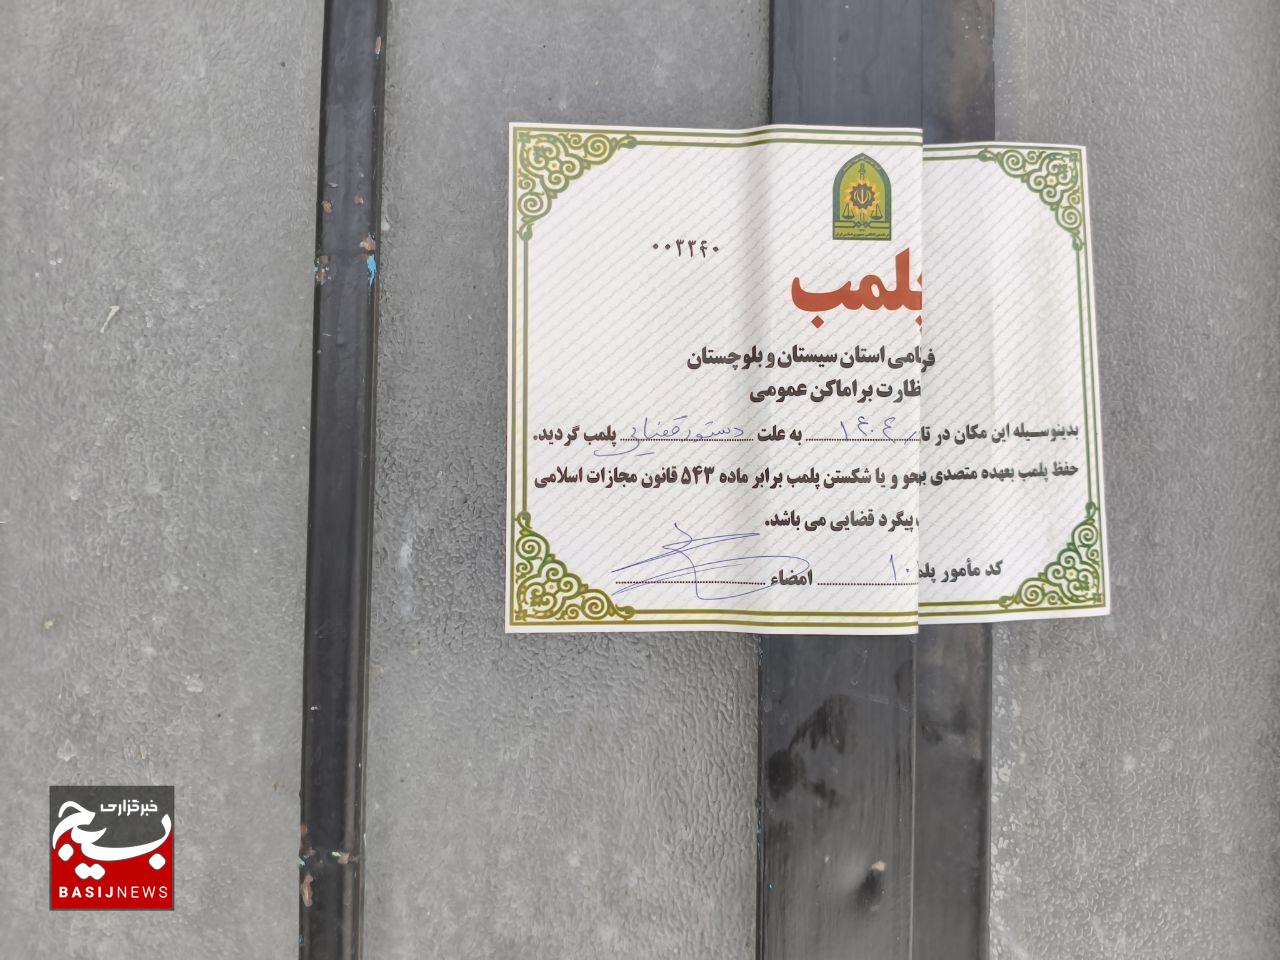 ۰۰۳۳۴۰
پلمب
فر‌امی استان سیستان و بلوچستان
ظارت بر اماکن عمومی
بدینوسیله این مکان در تا به علت دستور قضایی پلمب گردید.
حفظ پلمب بعهده متصدی محو و یا شکستن پلمب برابر ماده ۵۴۳ قانون مجازات اسلامی
پیگرد قضایی می باشد.
کد مأمور پلم ۱۰ امضاء
خبرگزاری
بسیج
BASIJNEWS